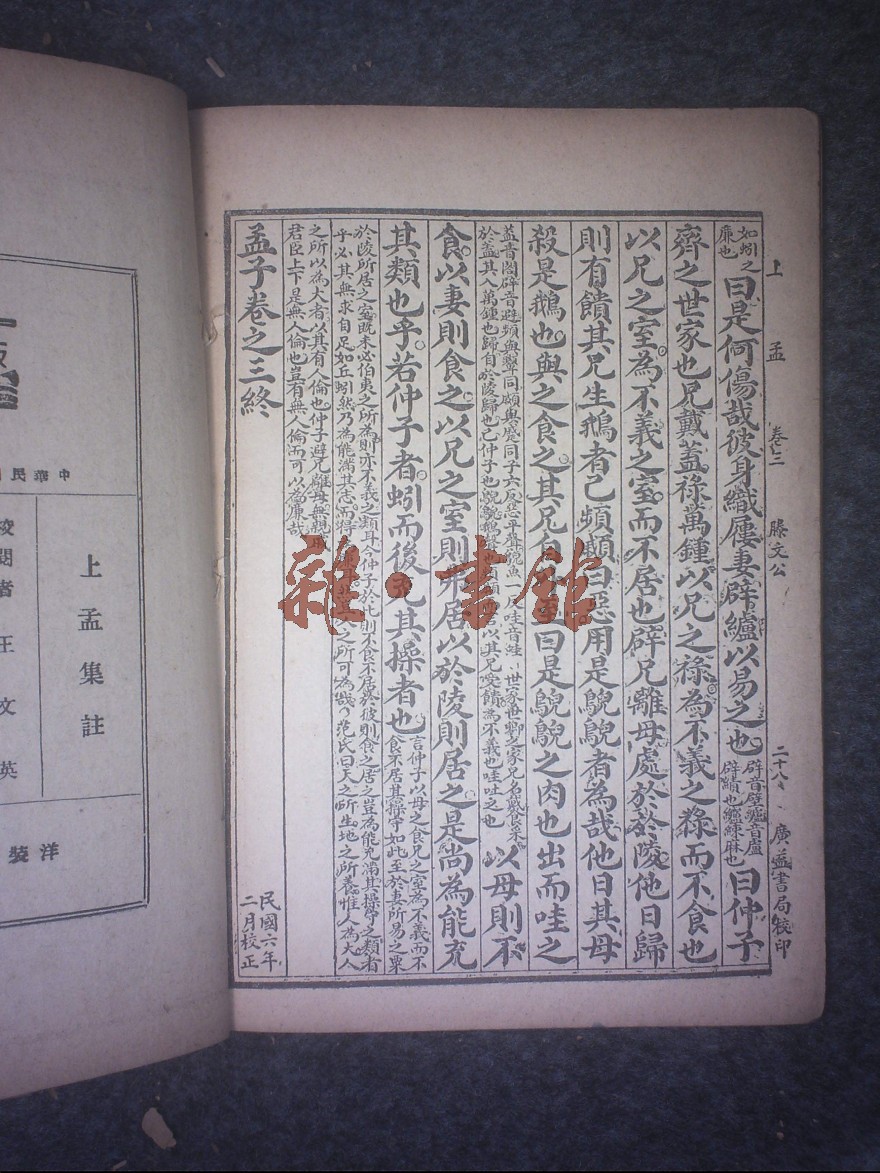 上孟 卷三 滕文公 二十八 廣益書局校印
如蚓之
廉也
曰是何傷哉彼身織屨妻辟纑以易之也
辟音壁纑音盧
辟績也纑練麻也
曰仲子
齊之世家也兄戴蓋祿萬鍾以兄之祿為不義之祿而不食也
以兄之室為不義之室而不居也辟兄離母處於於陵他日歸
則有饋其兄生鵝者己頻顣曰惡用是鶃鶃者為哉他日其母
殺是鵝也與之食之其兄自曰是鶃鶃之肉也出而哇之
蓋音閤辟音避頻與顰同顣與蹙同子六反惡平聲鶃魚一反哇音蛙世家世卿之家兄名戴食采
於蓋其入萬鍾也歸自於陵歸也己仲子也鶃鶃鵝聲以其兄受饋為不義也哇吐之也
以母則不
食以妻則食之以兄之室則弗居以於陵則居之是尚為能充
其類也乎若仲子者蚓而後充其操者也
言仲子以母之食兄之室為不義而不
食不居其操守如此至於妻所易之粟
於陵所居之室既未必伯夷之所為則亦不義之類耳今仲子於此則不食不居於彼則食之居之豈為能充滿其操守之類者
乎必其無求自足如丘蚓然乃為能滿其志而得之所可為哉范氏曰天之所生地之所養惟人為大人
之所以為大者以其有人倫也仲子避兄離母無親戚
君臣上下是無人倫也豈有無人倫而可以為廉哉
孟子卷之三終
民國六年
二月校正
中華民
上孟集註
校閱者 王文英
洋裝
雜·書館